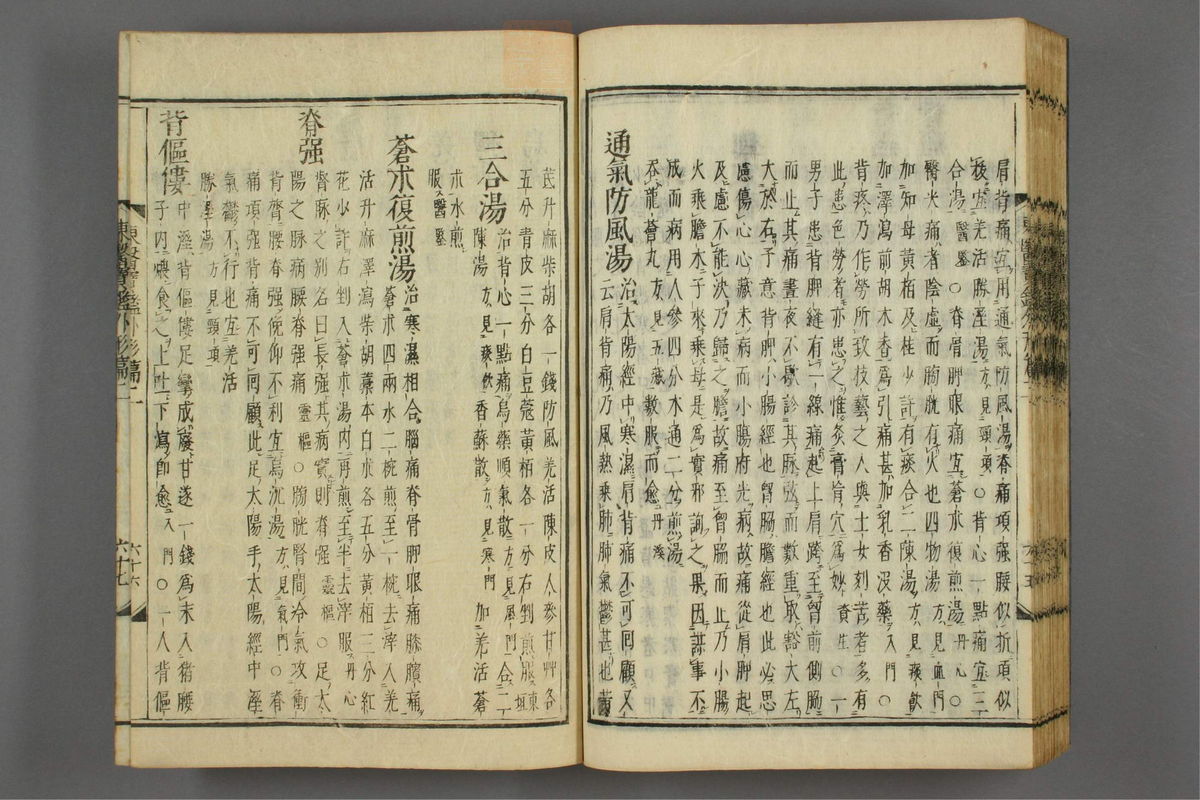 肩背痛宜用通氣防風湯脊痛項强腰似折項似
拔宜羌活勝湿湯方見頭項○背心一點痛宜三
合湯醫鑒○脊骨胛眼痛宜蒼朮復煎湯丹心○
腎火痛者陰虛而膀胱有火也四物湯方見血門
加知母黃栢及桂少許有痰合二陳湯方見痰飮
加澤瀉前胡木香爲引痛甚加乳香沒藥入門○
背疼乃作勞所致技藝之人與士女刻苦者多有
此患色勞者亦患之惟灸膏肓穴爲妙資生○一
男子患背胛縫有一線痛起上肩跨至胷前側脇
而止其痛晝夜不歇診其脉弦而數重取豁大左
大於右予意背胛小腸經也胷脇膽經也此必思
慮傷心心藏未病而小腸府先病故痛從肩胛起
及慮不能決乃歸之膽故痛至胷脇而止乃小腸
火乘膽木子來乘母是爲實邪詢之果因謀事不
成而病用人參四分木通二分煎湯
吞龍薈丸方見五臟數服而愈丹溪
通氣防風湯治太陽經中寒濕肩背痛不可回顧又
云肩背痛乃風熱乘肺肺氣鬱甚也黃
芪升麻柴胡各一錢防風羌活陳皮人參甘艸各
五分靑皮三分白豆蔻黃栢各一分右剉煎服東垣
三合湯治背心一點痛烏藥順氣散方見風門合二
陳湯方見痰飮香蘇散方見寒門加羌活蒼
朮水煎
服醫鑒
蒼朮復煎湯治寒濕相合腦痛脊骨胛眼痛膝臏痛
蒼朮四兩水二椀煎至一椀去滓入羌
活升麻澤瀉柴胡藁本白朮各五分黃栢三分紅
花少許右剉入蒼朮湯內再煎至半去滓服丹心
脊强
督脉之別名曰長强其病實則脊强靈樞○足太
陽之脉病腰脊强痛靈樞○膀胱腎間冷氣攻衝
背膂腰脊强俛仰不利宜烏沉湯方見氣門○脊
痛項强背痛不可回顧此足太陽手太陽經中溼
氣鬱不行也宜羌活
勝溼湯方見頭項
背傴僂
中溼背傴僂足攣成廢甘遂一錢爲末入猪腰
子內煨食之上吐下瀉卽愈入門○一人背傴
六十七